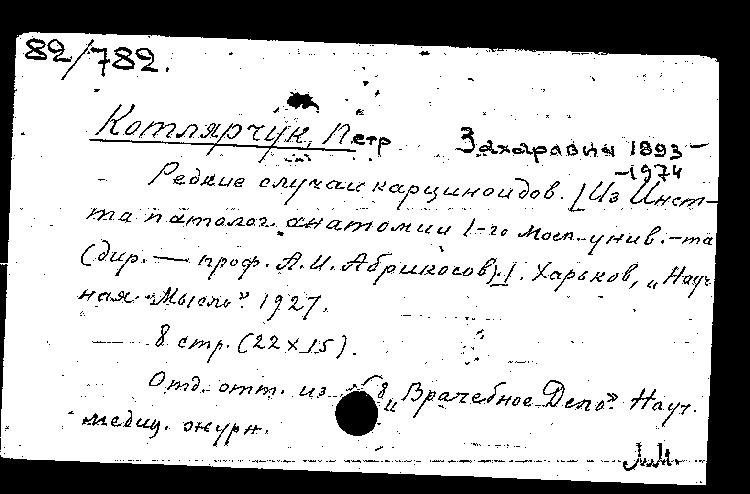 82/782.
Котлярчук, Петр Захарович 1893-
-1974
Редкие случаи карциноидов. [Из Инст-
та патолог. анатомии 1-го Моск. унив.-та
(дир. — проф. А. И. Абрикосов).]. Харьков, „Науч
ная Мысль". 1927.
8 стр. (22х15).
Отд. отт. из „Врачебное Дело". Науч.
медиц. журн.